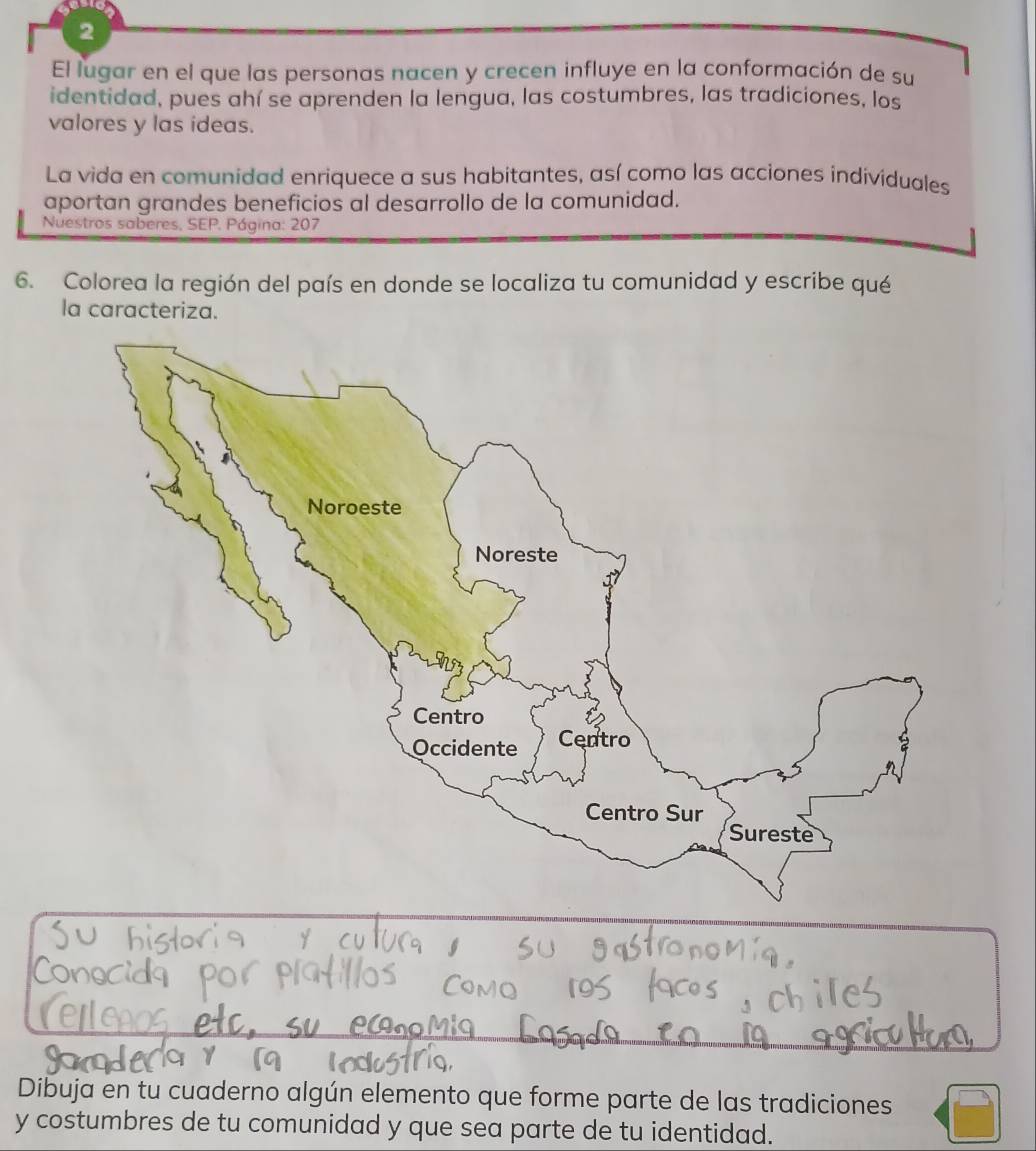 Sesión
2
El lugar en el que las personas nacen y crecen influye en la conformación de su
identidad, pues ahí se aprenden la lengua, las costumbres, las tradiciones, los
valores y las ideas.
La vida en comunidad enriquece a sus habitantes, así como las acciones individuales
aportan grandes beneficios al desarrollo de la comunidad.
Nuestros saberes, SEP. Página: 207
6. Colorea la región del país en donde se localiza tu comunidad y escribe qué
la caracteriza.
Noroeste
Noreste
Centro
Occidente
Centro
Centro Sur
Sureste
Su historia y cutura, su gastronomia.
Conocida por platillos como los tacos, chiles
rellenos etc, su economia basada en la agricultura,
ganaderia y la industria.
Dibuja en tu cuaderno algún elemento que forme parte de las tradiciones
y costumbres de tu comunidad y que sea parte de tu identidad.